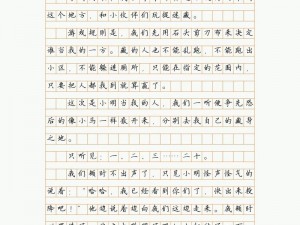 这个地方，和小伙伴们玩捉迷藏。
游戏规则是，我们先用石头剪刀布来决定
谁当我的一方。藏的人也不能乱跑，不能跑出
小区，不能躲进厕所，只能在指定的范围内，
只要把人都找到就算赢了。
这次是小明当我的人，我们一听便争先恐
后的像小马一样散开来，分别去找自己的藏身
之地。
只听见，一、二、三……二十。
我们顿时不出声了，只见小明怪声怪气的
说着：“哈哈，我已经看到你们了，快出来投
降吧！”他边说着边向我们这边走来。我顿时